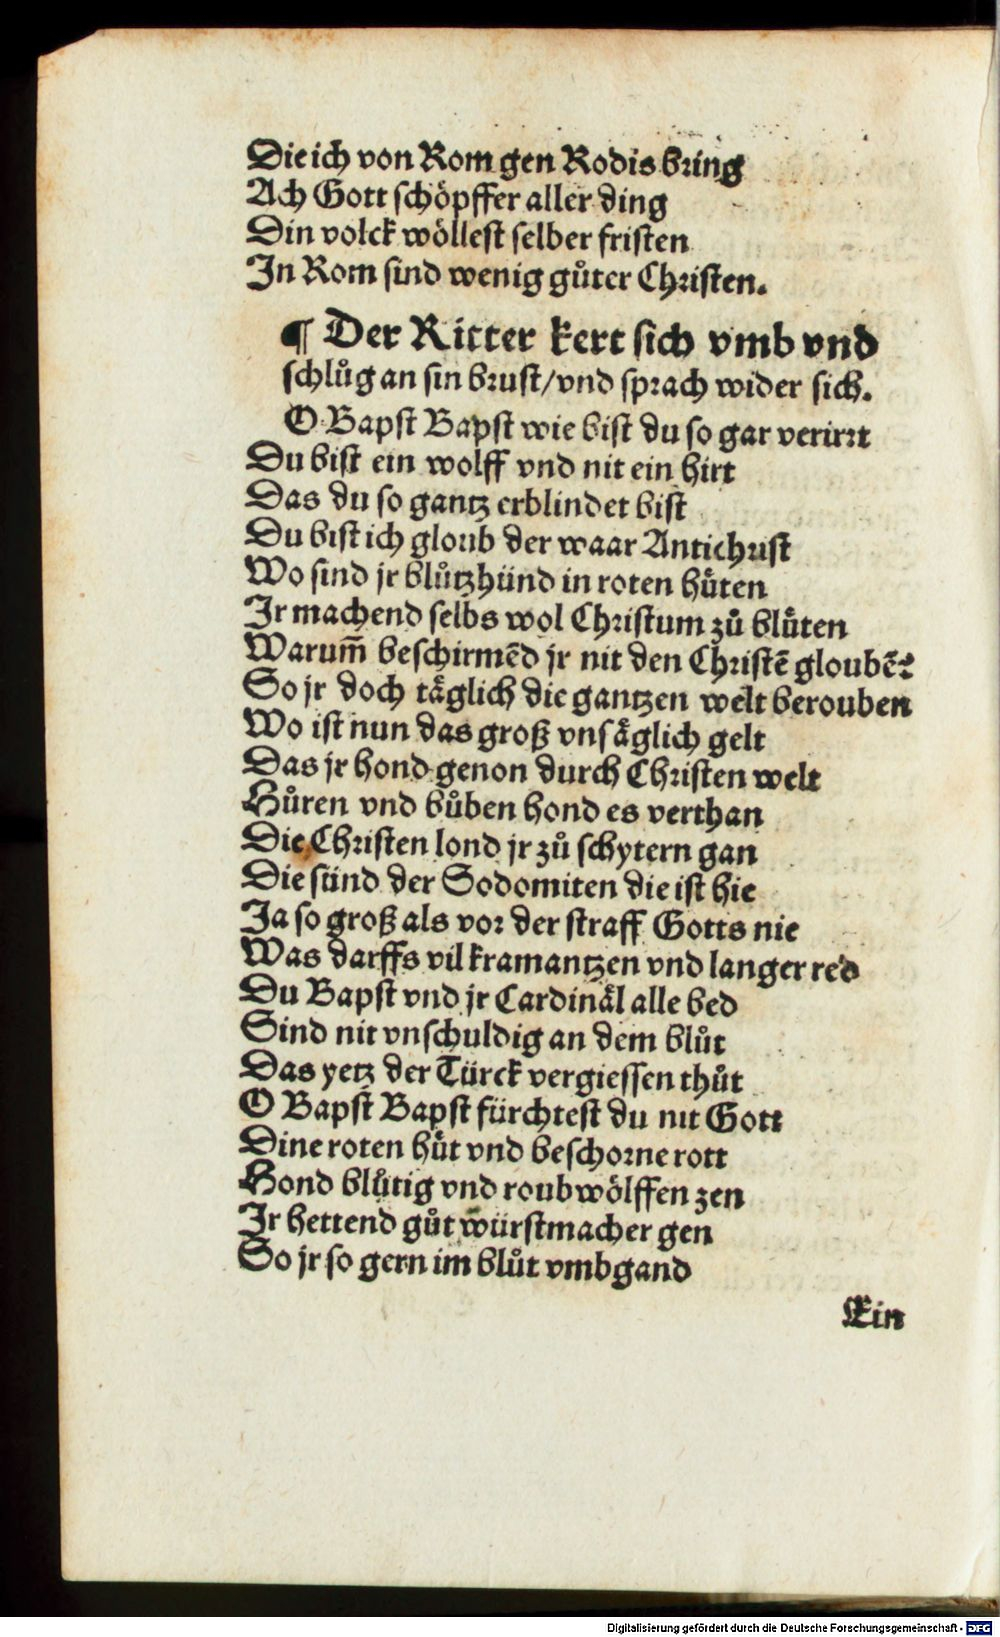 Die ich von Rom gen Rodis bring
Ach Gott schöpffer aller ding
Din volck wöllest selber fristen
In Rom sind wenig gůter Christen.
¶ Der Ritter kert sich vmb vnd
schlůg an sin brust/vnd sprach wider sich.
O Bapst Bapst wie bist du so gar verirrt
Du bist ein wolff vnd nit ein hirt
Das du so gantz erblindet bist
Du bist ich gloub der waar Antichrist
Wo sind jr blůtzhünd in roten hu̽ten
Ir machend selbs wol Christum zů blu̽ten
Warum̄ beschirmēd jr nit den Christē gloubē?
So jr doch täglich die gantzen welt berouben
Wo ist nun das groß vnsäglich gelt
Das jr hond genon durch Christen welt
Hůren vnd bůben hond es verthan
Die Christen lond jr zů schytern gan
Die sünd der Sodomiten die ist hie
Ja so groß als vor der straff Gotts nie
Was darffs vil kramantzen vnd langer red
Du Bapst vnd jr Cardinäl alle bed
Sind nit vnschuldig an dem blůt
Das yetz der Türck vergiessen thůt
O Bapst Bapst fürchtest du nit Gott
Dine roten hu̽t vnd beschorne rott
Hond blůtig vnd roubwölffen zen
Ir hettend gůt würstmacher gen
So jr so gern im blůt vmbgand
Ein
Digitalisierung gefördert durch die Deutsche Forschungsgemeinschaft - DFG